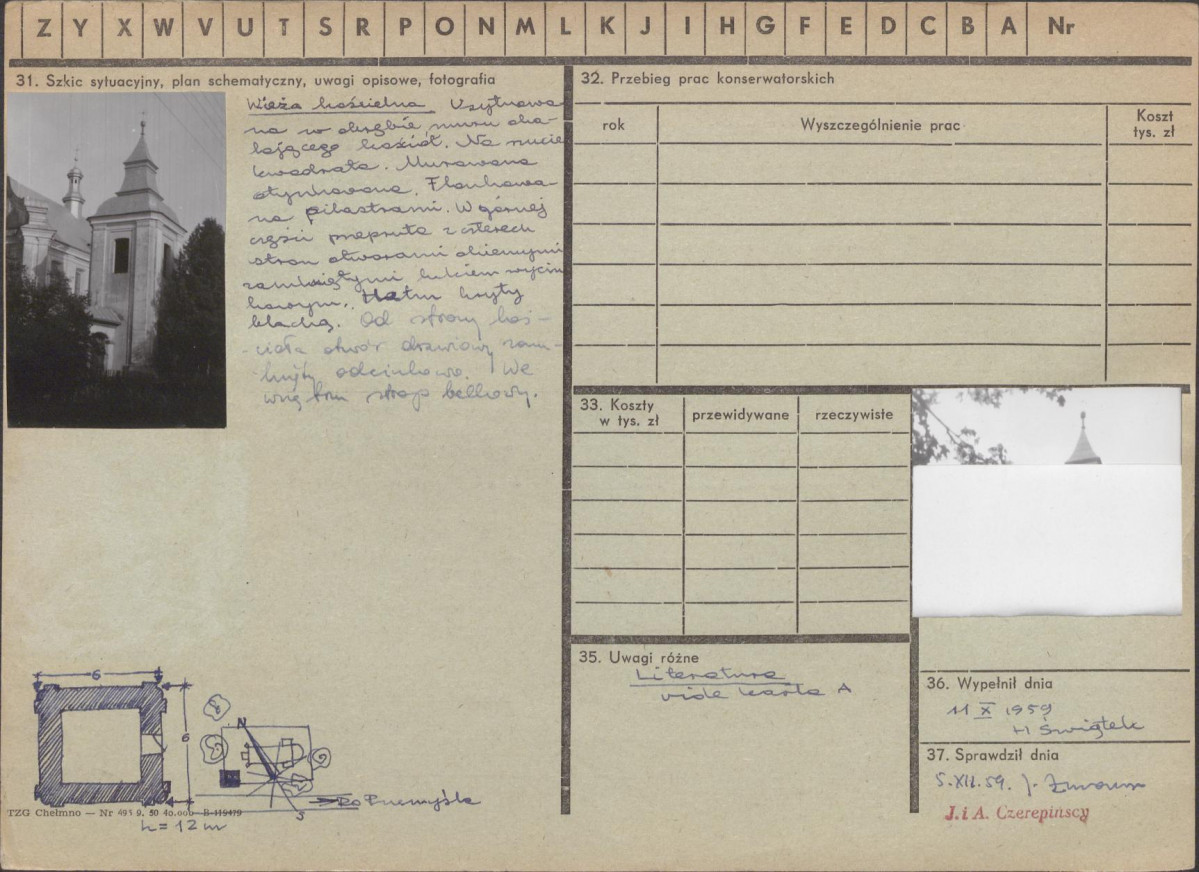 Z Y X W V U T S R P O N M L K J I H G F E D C B A Nr
31. Szkic sytuacyjny, plan schematyczny, uwagi opisowe, fotografia
Wieża kościelna. Usytuowa-
na w obrębie muru ota-
czającego kościół. Na rzucie
kwadratu. Murowana
otynkowana. Flankowa-
na pilastrami. W górnej
części przepruta z czterech
stron otworami okiennymi
zamkniętymi łukiem wycin
kowym. Hełm kryty
blachą. Od strony koś-
cioła otwór drzwiowy zam-
knięty odcinkowo. We
wnętrzu strop belkowy.
6
6
N
S
Do Przemyśla
TZG Chełmno — Nr 495 9. 50 40.000 B-119479
h = 12 m
32. Przebieg prac konserwatorskich
rok
Wyszczególnienie prac
Koszt
tys. zł
33. Koszty
w tys. zł
przewidywane
rzeczywiste
35. Uwagi różne
Literatura
vide karta A
36. Wypełnił dnia
11 X 1959
H Świątek
37. Sprawdził dnia
5.XII.59. J.
J. i A. Czerepińscy